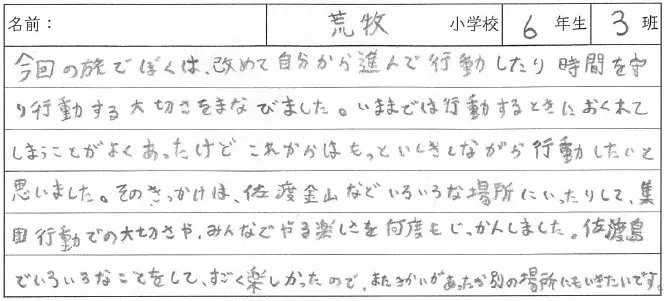 名前： 荒牧 小学校 6 年生 3 班
今回の旅でぼくは、改めて自分から進んで行動したり時間を守
り行動する大切さをまなびました。いままでは行動するときにおくれて
しまうことがよくあったけどこれからはもっといしきしながら行動したいと
思いました。そのきっかけは、佐渡金山などいろいろな場所にいったりして、集
団行動での大切さや、みんなでやる楽しさを何度もじっかんしました。佐渡島
でいろいろなことをして、すごく楽しかったので、またきかいがあったら別の場所にもいきたいです。